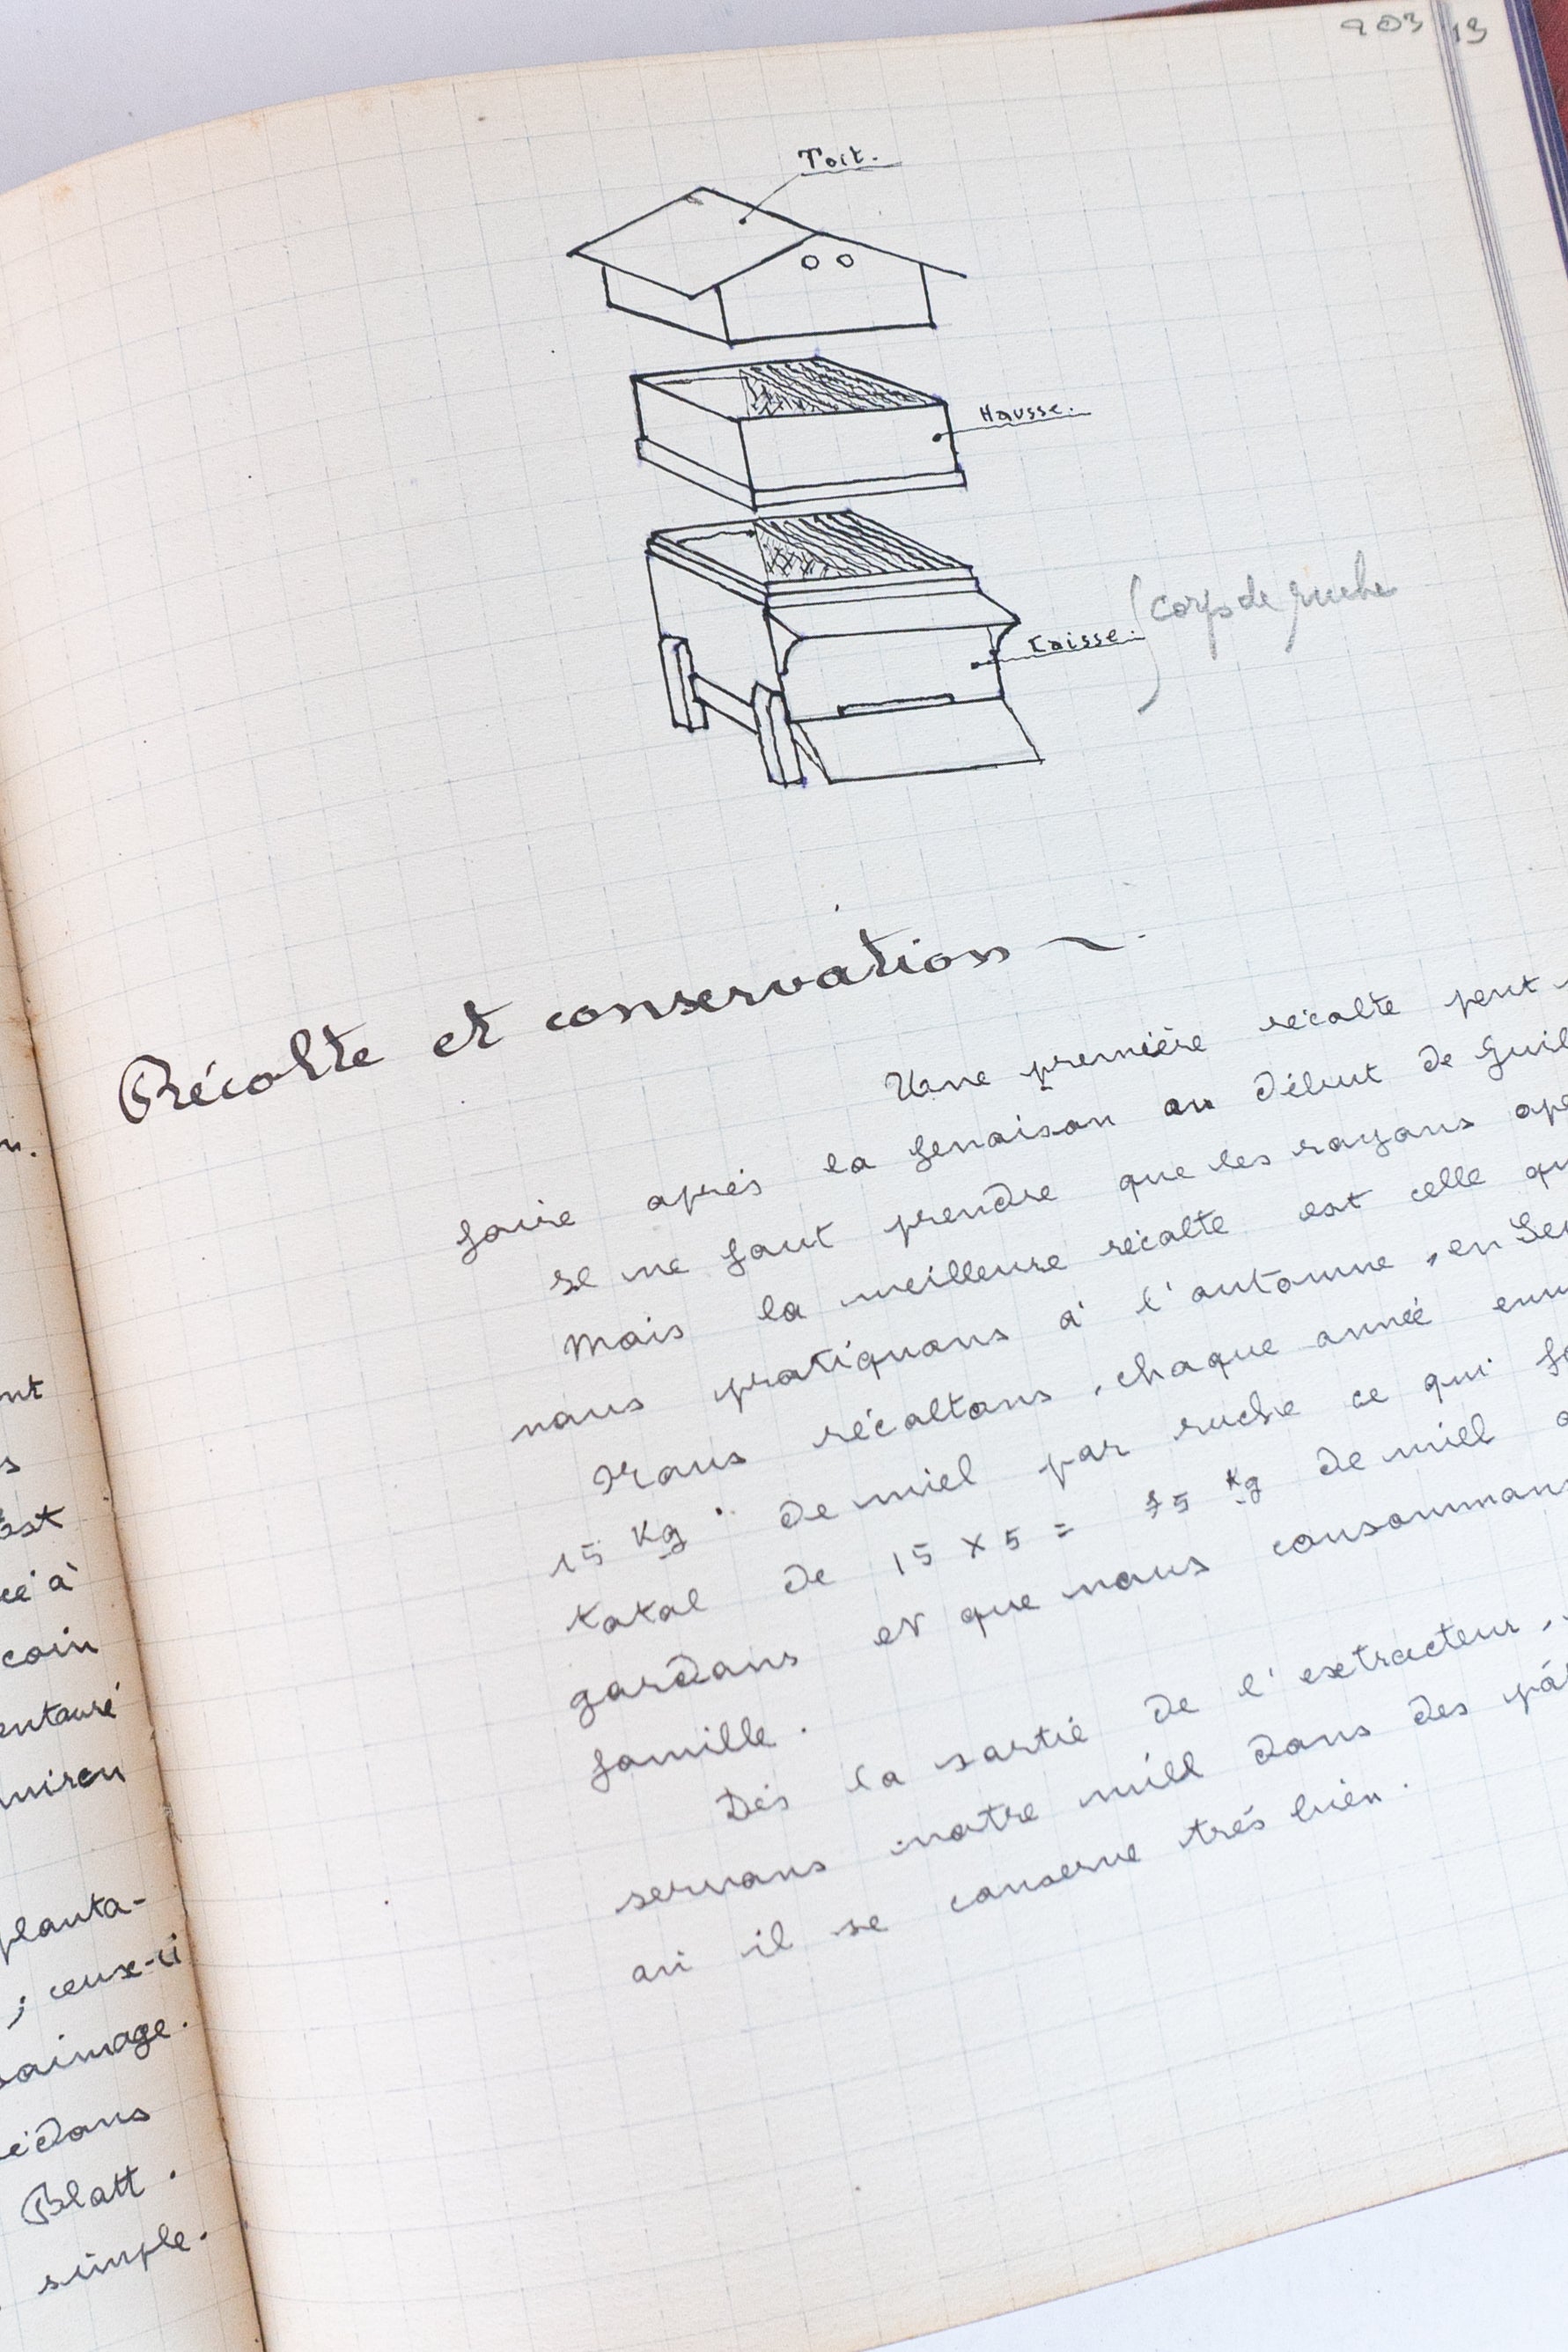 203 13
Toit.
Hausse.
Caisse.
corps de ruche
Récolte et conservation
Une première récolte peut
faire après la fenaison au début de Juil
Il ne faut prendre que les rayons opé
Mais la meilleure récolte est celle qu
nous pratiquons à l'automne, en Se
Nous récoltons, chaque année env
15 Kg de miel par ruche ce qui fa
total de 15 x 5 = 75 Kg de miel
gardons et que nous consommons
famille.
Dès la sortie de l'extracteur,
servons notre miel dans des pá
où il se conserve très bien.
n.
nt
s
est
ce à
coin
entouré
planta-
; ceux-ci
saimage.
édons
Blatt.
simple.